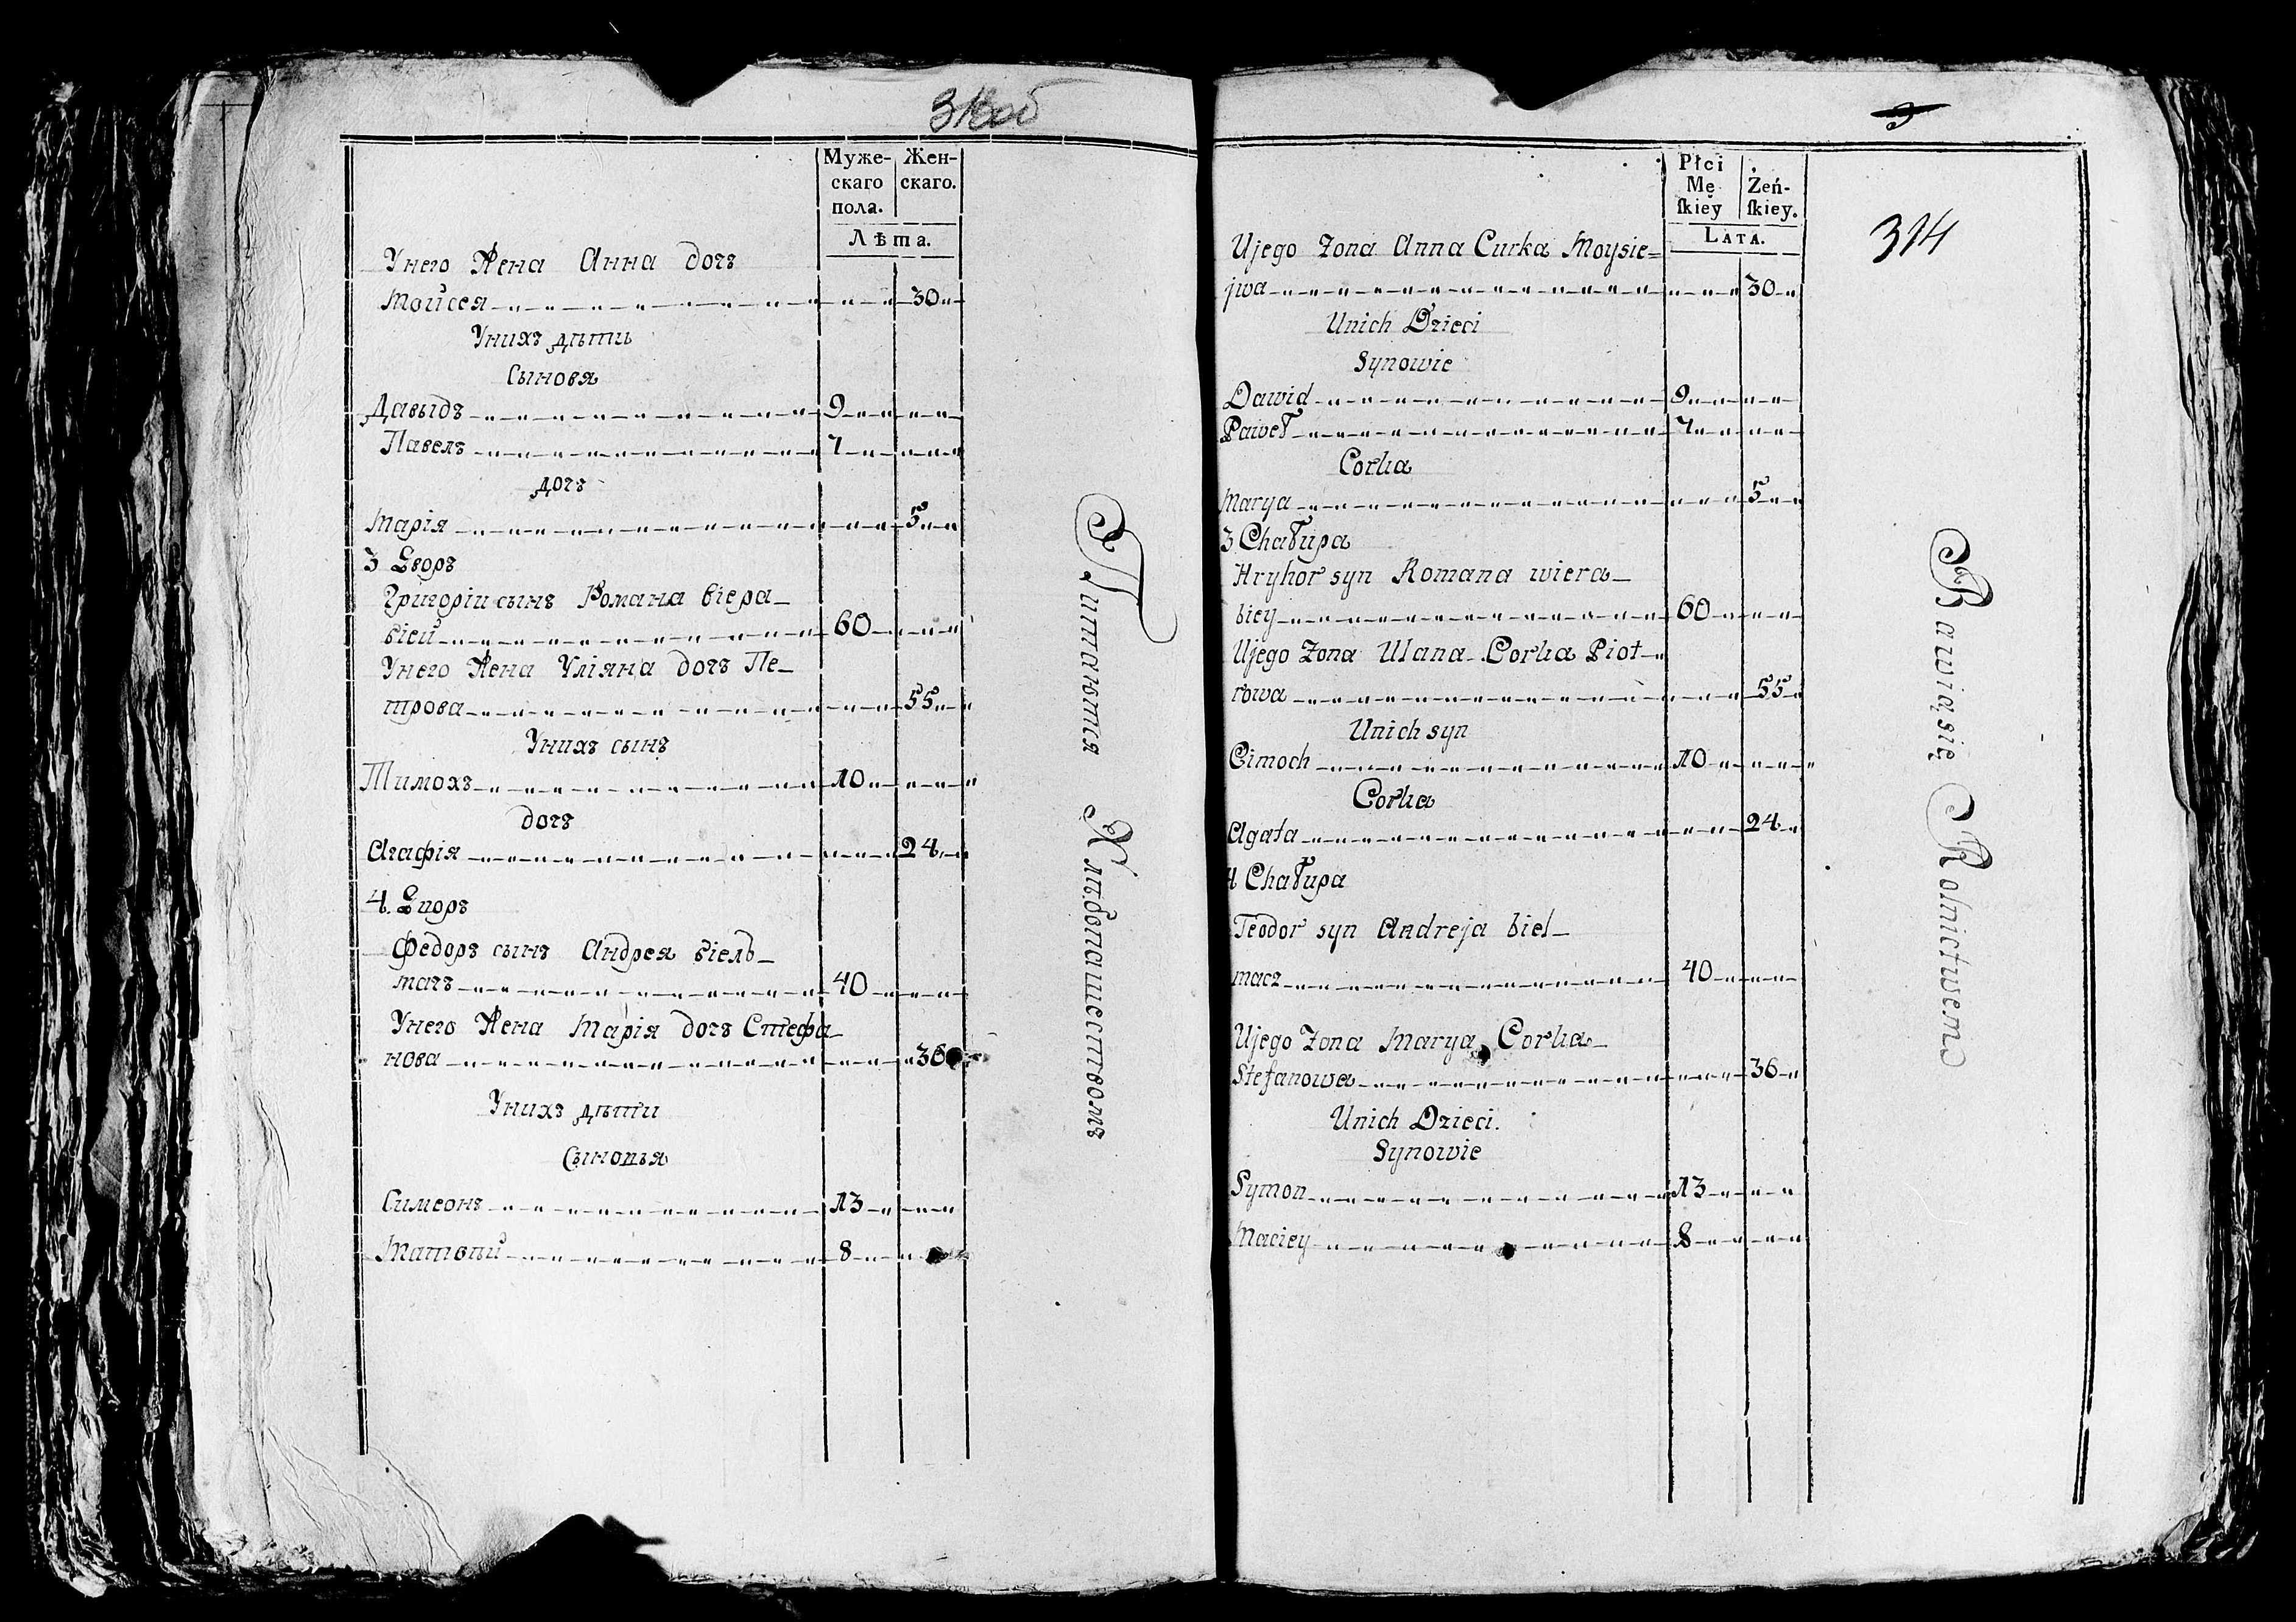 Муже-
скаго
пола.
Жен-
скаго.
Лѣта.
Унего Жена Анна дочъ
Мойсея 30
Унихъ дѣти
Сыновя
Давыдъ 9
Павелъ 7
дочъ
Марія 5
3 Дворъ
Григоріи сынъ Романа Віера-
біей 60
Унего Жена Уліяна дочъ Пе-
трова 55
Унихъ сынъ
Тимохъ 10
дочъ
Агафія 24
4. Дворъ
Федоръ сынъ Андрея Біелъ-
мачъ 40
Унего Жена Марія дочъ Стефа-
нова 36
Унихъ дѣти
Сыновья
Симеонъ 13
Матвѣй 8
Питаются Хлѣбопашествомъ
314
Płci
Mę
skiey
Żeń-
skiey.
LATA.
Ujego Zona Anna Curka Moysie=
jwa 30
Unich Dzieci
Synowie
Dawid 9
Paweł 7
Corka
Marya 5
3 Chałupa
Hryhor syn Romana wiera-
biey 60
Ujego Zona Ulana Corka Piot-
rowa 55
Unich syn
Cimoch 10
Corka
Agata 24
4 Chałupa
Teodor syn Andreja biel-
macz 40
Ujego Zona Marya Corka-
Stefanowa 36
Unich Dzieci.
Synowie
Symon 13
Maciey 8
Bawiąsię Rolnictwem